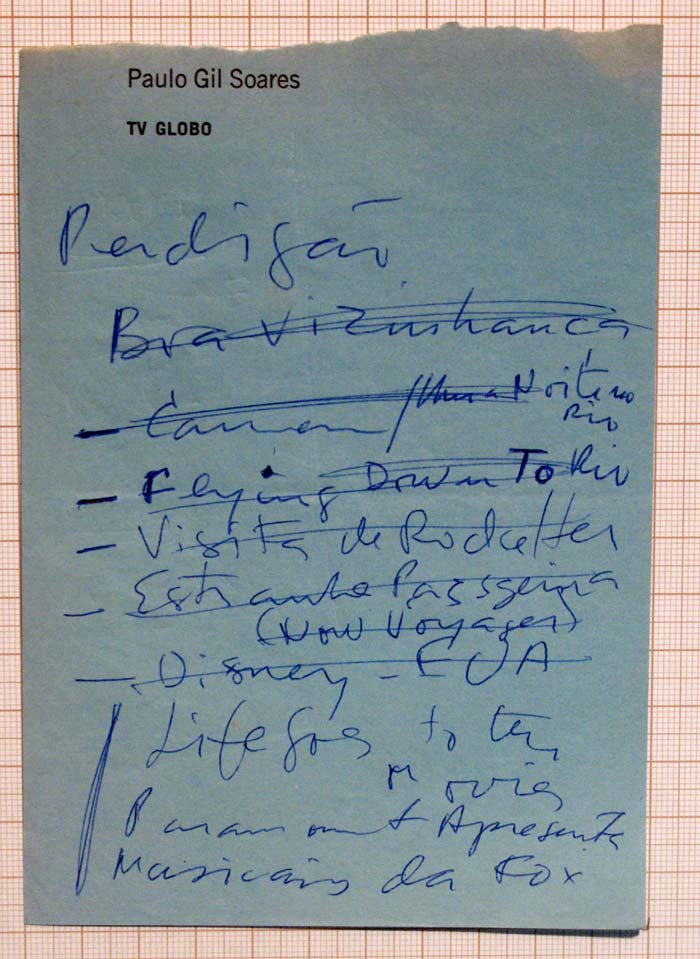 Paulo Gil Soares
TV GLOBO
Perdigão
Boa Vizinhança
- Carmen / Uma Noite no
Rio
- Flying Down To Rio
- Visita de Rockefeller
- Estranha Passageira
(Now Voyager)
- Disney - EUA
Life Goes to the
Movies
Paramount Apresenta
Musicais da Fox